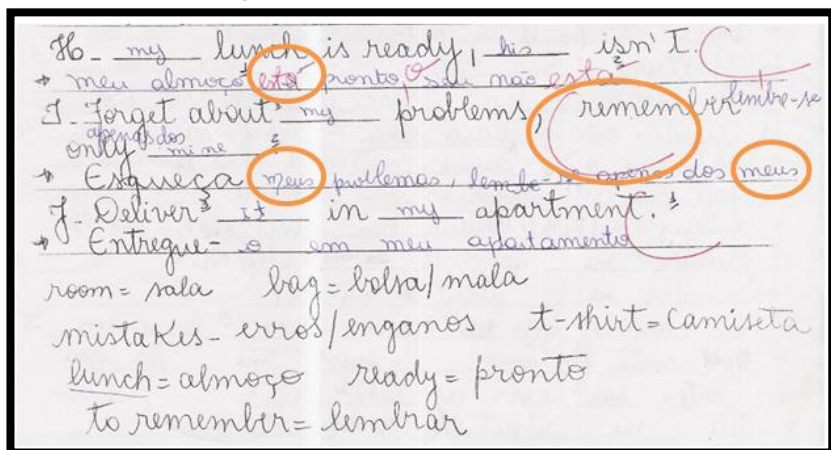 H- my lunch is ready, his isn'T.
→ meu almoço está pronto, o seu não está
I- Forget about my problems, remember lembre-se
apenas dos
only mine
→ Esqueça meus problemas, lembre-se apenas dos meus
J- Deliver it in my apartment.
→ Entregue-o em meu apartamento
room = sala bag = bolsa/mala
mistakes- erros/enganos t-shirt = Camiseta
lunch = almoço ready = pronto
to remember = lembrar